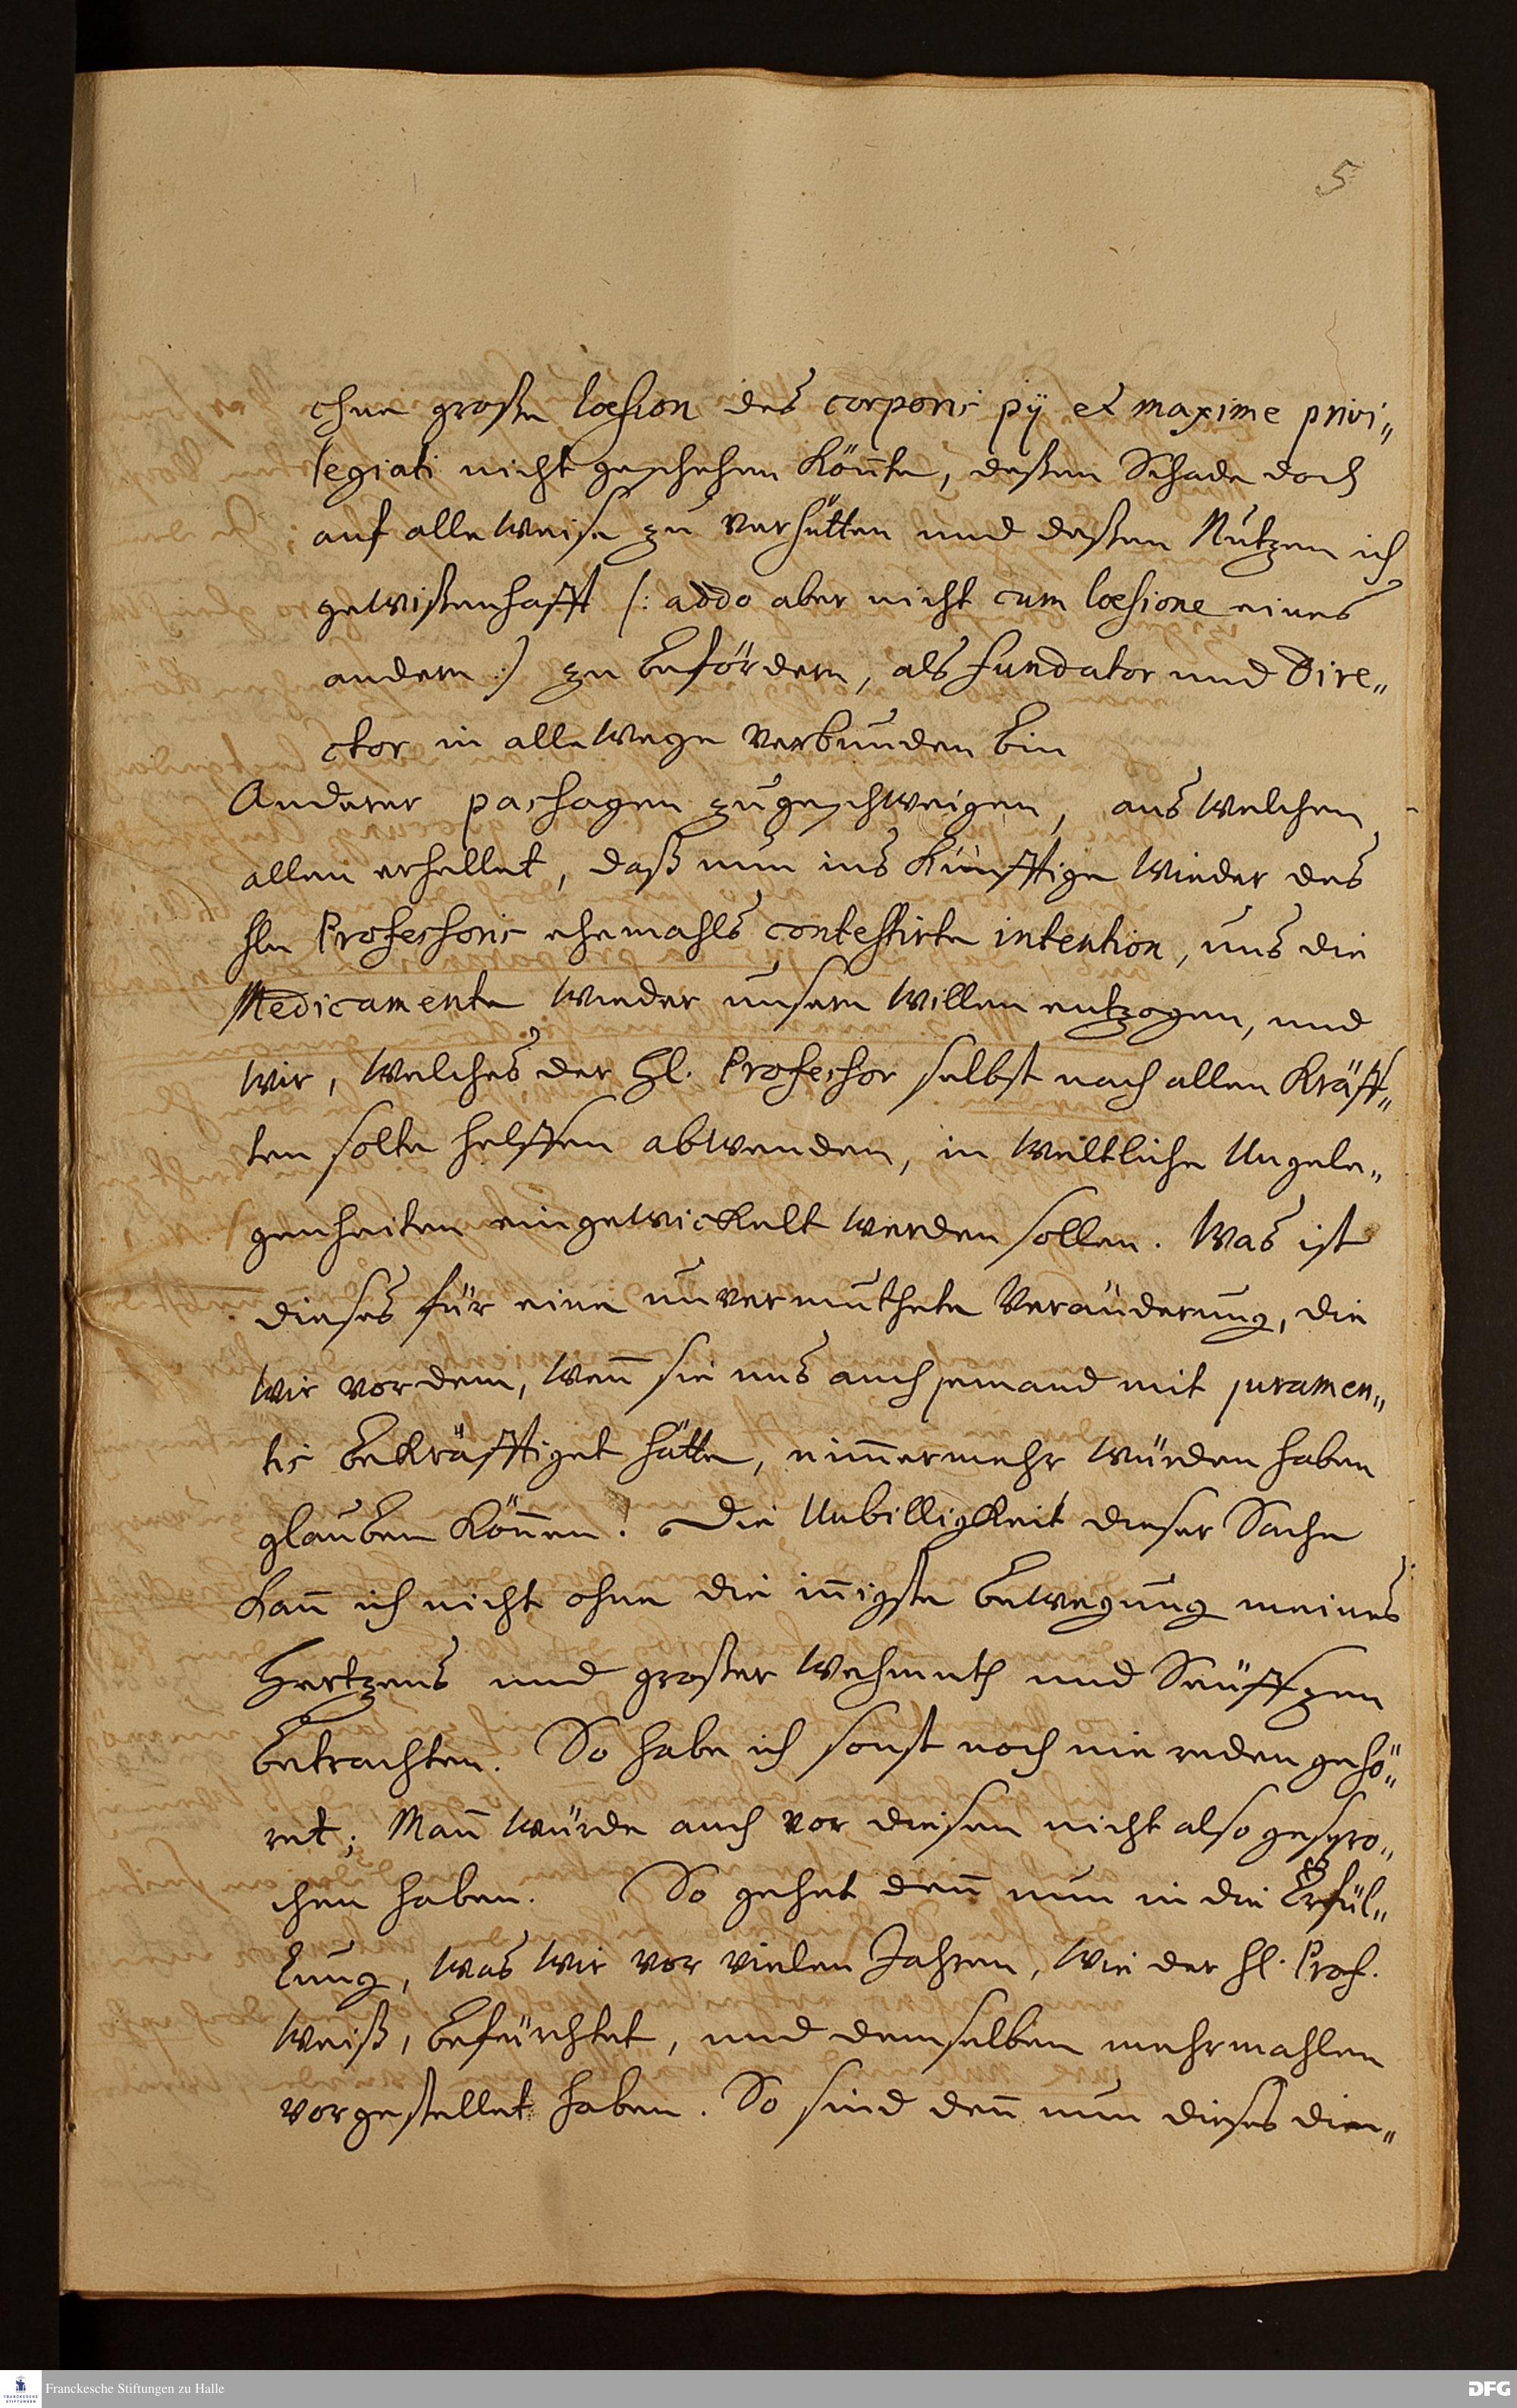 5
ohne große loesion des corporis pij et maxime privi„
legiati nicht geschehen köñte, deßen Schade doch
auf alle weise zu verhütten und deßen Nutzen ich
gewißenhafft (: addo aber nicht cum loesione eines
andern :) zu befördern, als fundator und Dire„
ctor in alle wege verbunden bin
Anderer passagen zugeschweigen, aus welchen
allen erhellet, daß nun ins künfftige wieder des
Hln Professoris ehemahls contestirte intention, uns die
Medicamente wieder unsern willen entzogen, und
wir, welches der Hl. Professor selbst nach allen Kräff„
ten solte helffen abwenden, in weltliche Ungele„
genheiten eingewickelt werden sollen. Was ist
dieses für eine unvermuthete Veränderung, die
wir vor dem, weñ sie uns auch jemand mit juramen„
tis bekräfftiget hätte, nim̃ermehr würden haben
glauben köñen! Die Unbilligkeit dieser Sache
kañ ich nicht ohne die iñigste bewegung meines
Hertzens und großer Wehmuth und Seüffzen
betrachten. So habe ich sonst noch nie reden gehö„
ret; Mañ würde auch vor diesen nicht also gespro„
chen haben. So gehet deñ nun in die Erfül„
lung, was wir vor vielen Jahren, wie der Hl. Prof.
weiß, befürchtet, und demselben mehrmahlen
vorgestellet haben. So sind deñ nun dieses die„
Franckesche Stiftungen zu Halle
FRANCKESCHE
STIFTUNGEN
DFG